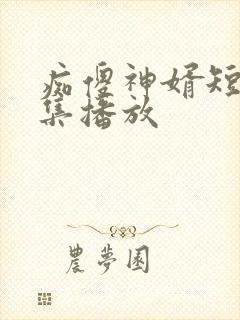 痴傻神婿短
集播放
農夢園